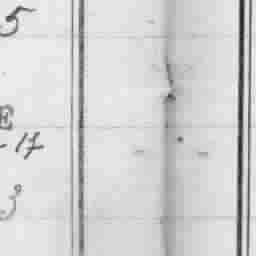 5
E
-17
3